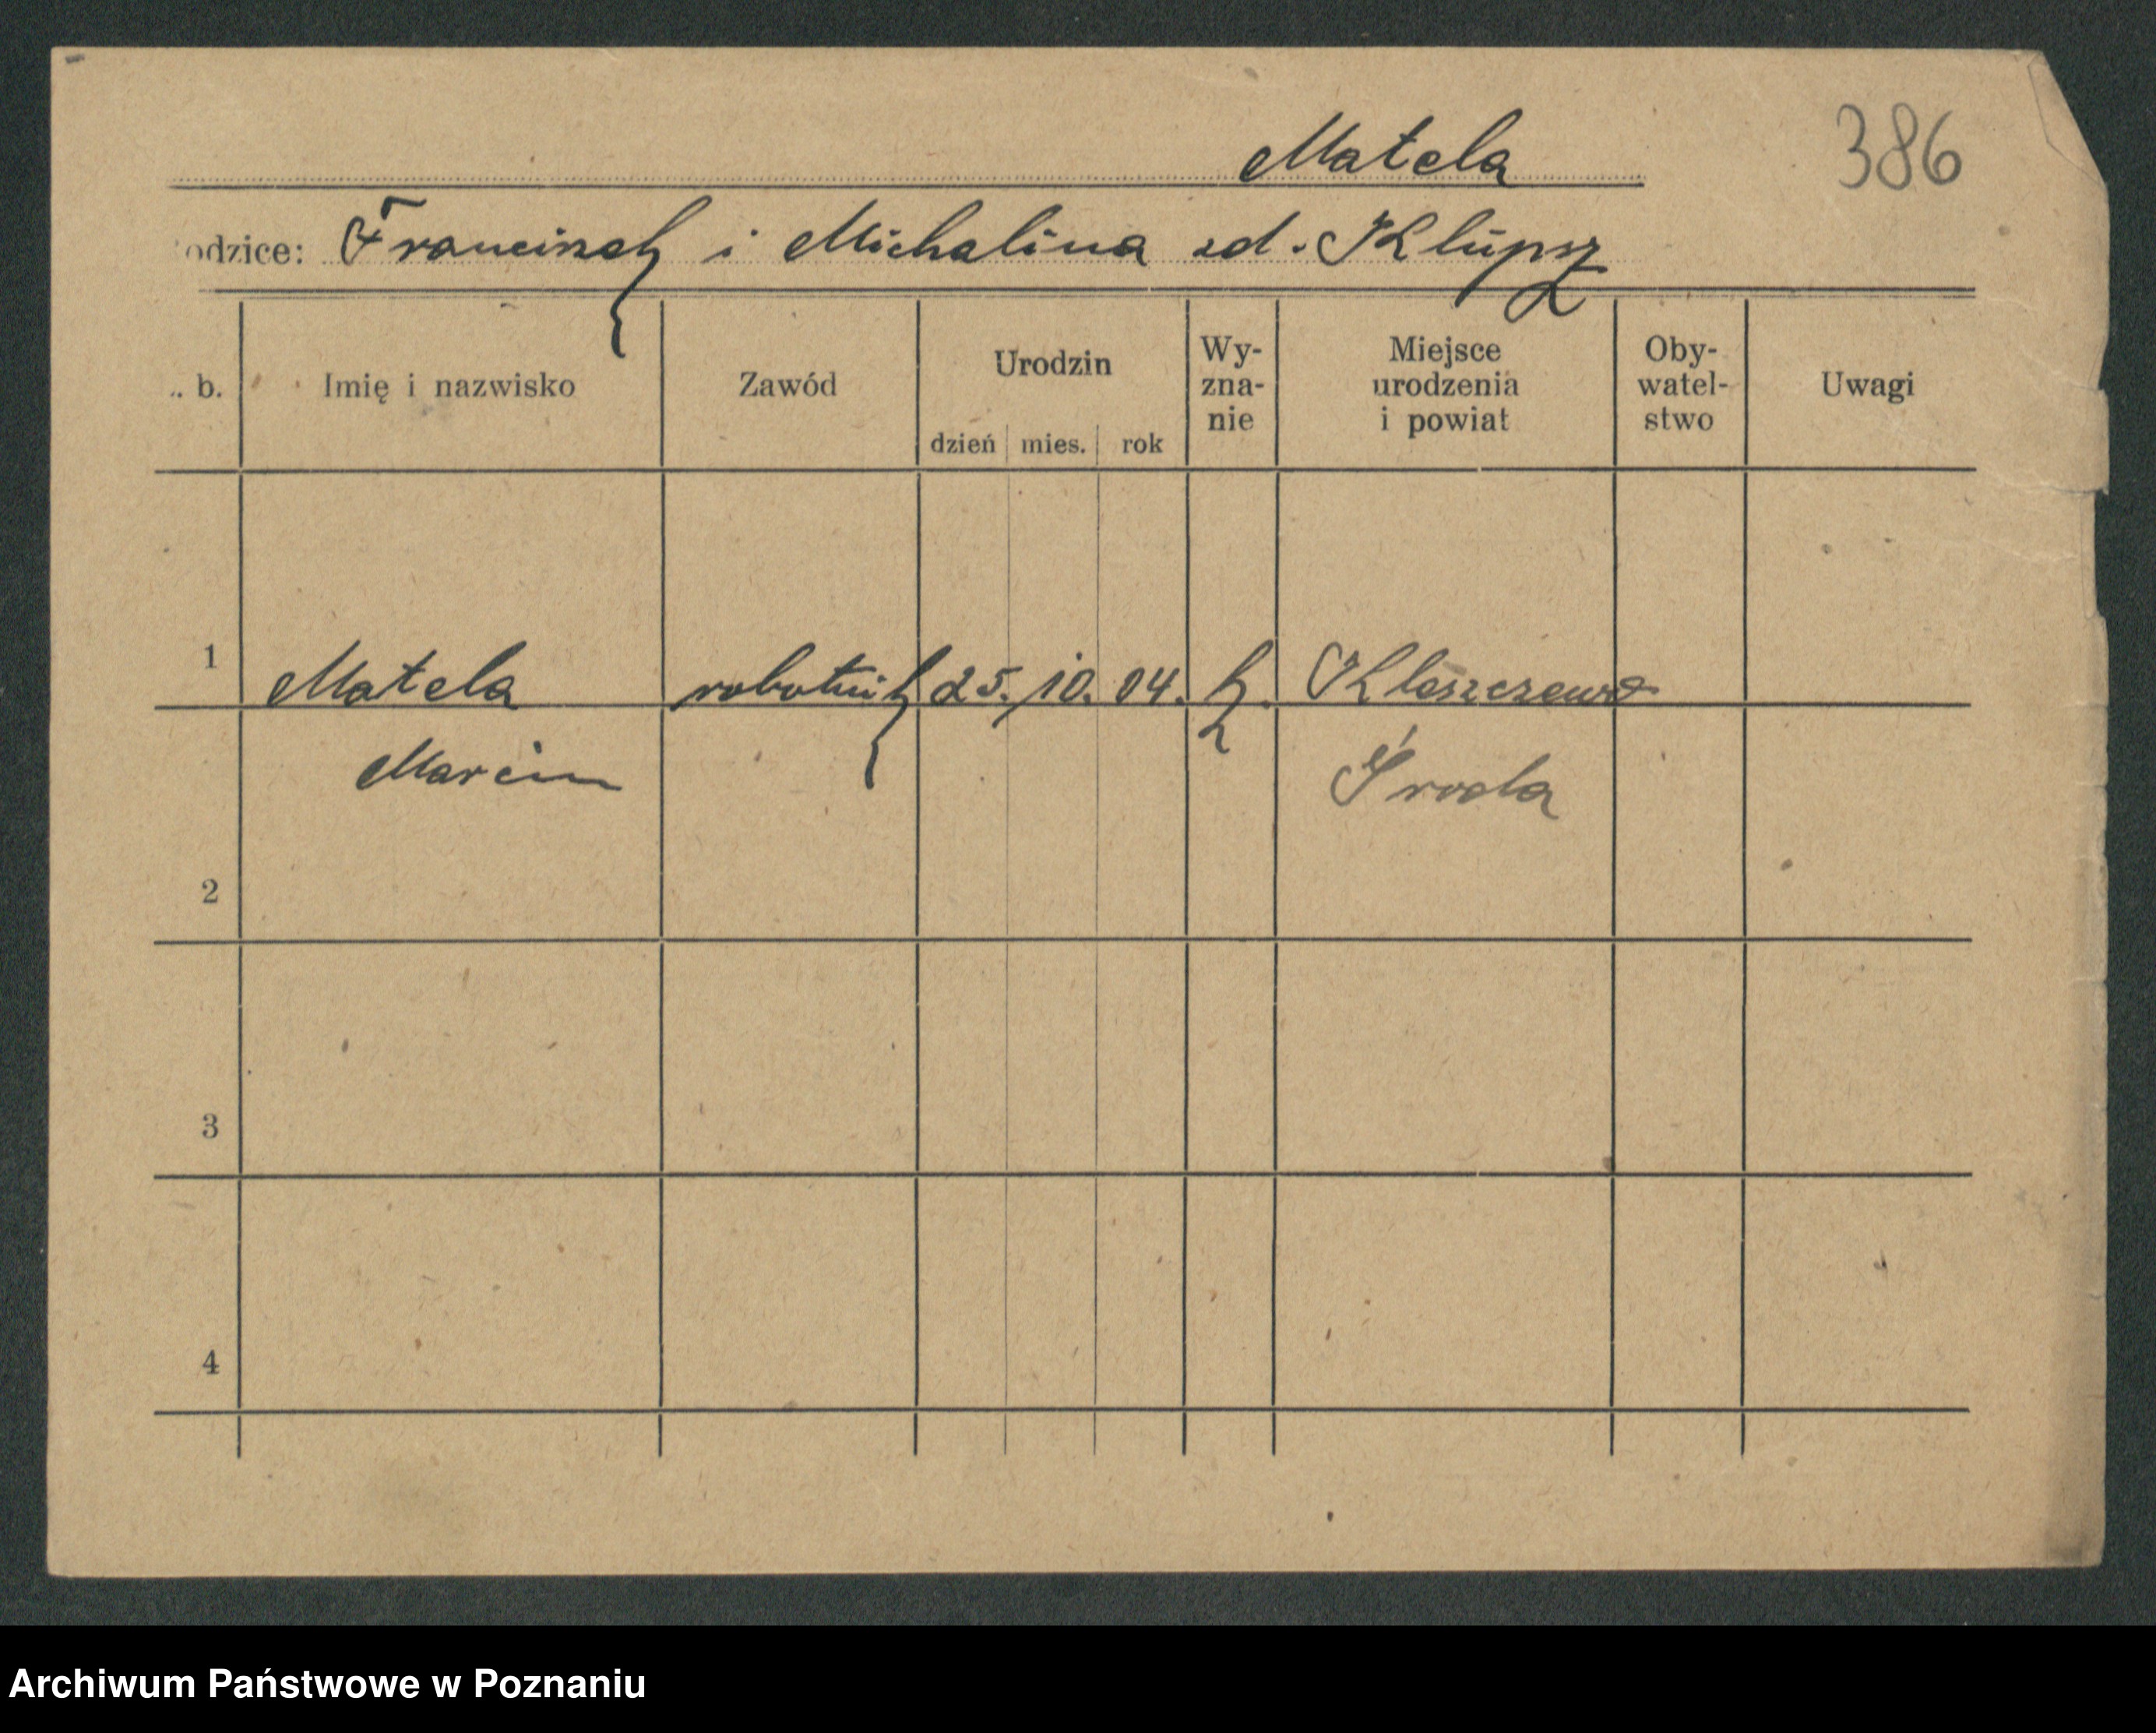 Matela
386
odzice: Franciszek i Michalina zd. Klupsz
. b. Imię i nazwisko Zawód Urodzin dzień mies. rok Wy-zna-nie Miejsce urodzenia i powiat Oby-watel-stwo Uwagi
1 Matela robotnik 25. 10. 04. k. Kleszczewo
Marcin Środa
2
3
4
Archiwum Państwowe w Poznaniu